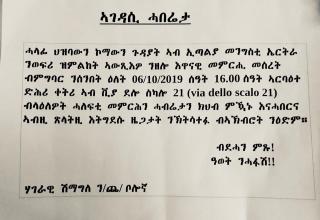 ኣገዳሲ ሓበሬታ
ሓላፊ ህዝባውን ኮማውን ጉዳያት ኣብ ኢጣልያ መንግስቲ ኤርትራ
ንወፍሪ ዝምልከት ኣውጺእዎ ንዘሎ እዋናዊ መምርሒ መሰረት
ብምግባር ንሰንበት ዕለት 06/10/2019 ሰዓት 16.00 ሰዓት ኣርባዕተ
ድሕሪ ቀትሪ ኣብ ቪያ ደሎ ስካሎ 21 (via dello scalo 21)
ብላዕለዎት ሓለፍቲ መምርሕን ሓብሬታን ክህብ ምዃኑ እናሓበርና
ኣብዚ ጽላትዚ እትግደሱ ዜጋታት ንኽትሳተፉ ብኣኽብሮት ንዕድም።
ብደሓን ምጹ!
ዓወት ንሓፋሽ!!
ሃገራዊ ሽማግለ ን/ጨ/ ቦሎኛ